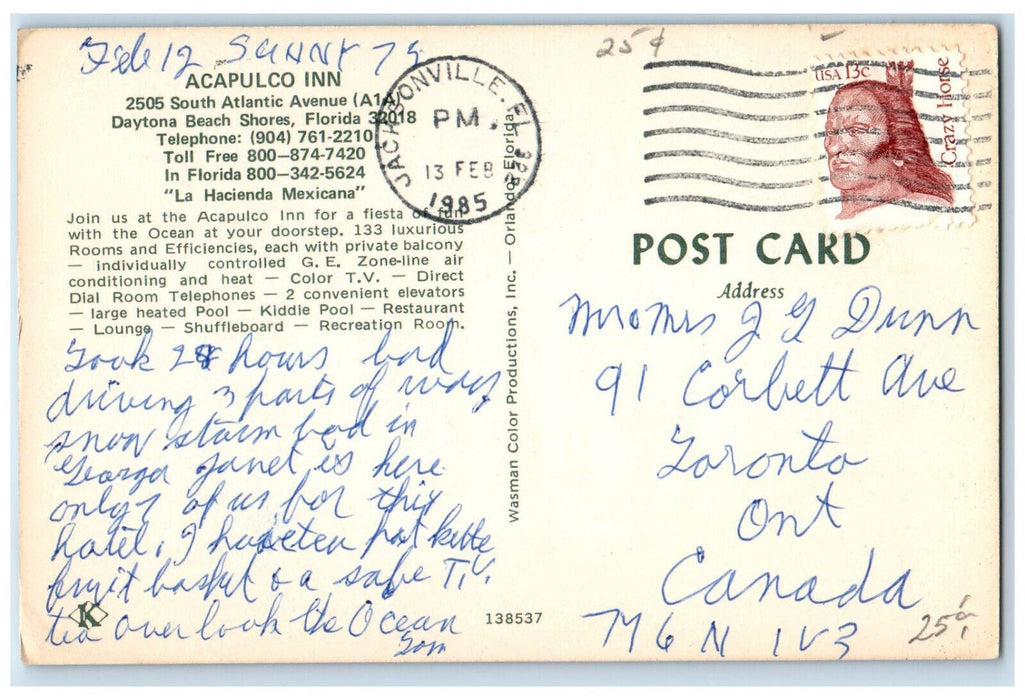 Feb 12 SUNNY 75
ACAPULCO INN
2505 South Atlantic Avenue (A1A)
Daytona Beach Shores, Florida 32018
Telephone: (904) 761-2210
Toll Free 800–874-7420
In Florida 800–342-5624
"La Hacienda Mexicana"
Join us at the Acapulco Inn for a fiesta of fun
with the Ocean at your doorstep. 133 luxurious
Rooms and Efficiencies, each with private balcony
— individually controlled G. E. Zone-line air
conditioning and heat — Color T.V. — Direct
Dial Room Telephones — 2 convenient elevators
— large heated Pool — Kiddie Pool — Restaurant
— Lounge — Shuffleboard — Recreation Room.
Took 28 hours bad
driving 3 parts of way
snow storm bad in
Janet is here
only of us for this
hotel, I have
fruit basket & a safe T.V.
over look the Ocean
Tom
K
138537
Wasman Color Productions, Inc. — Orlando, Florida
JACKSONVILLE, FL
PM
13 FEB
1985
25¢
USA 13c
Crazy Horse
POST CARD
Address
Mr & Mrs J G Dunn
91 Corbett Ave
Toronto
Ont
Canada
M6N 1V3
25¢